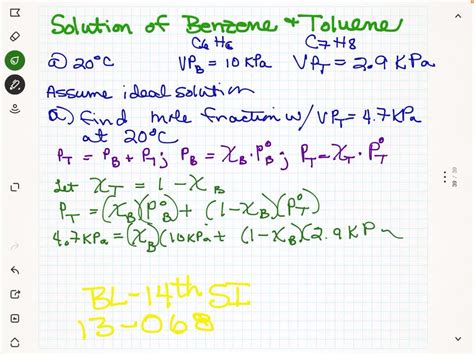 Solution of Benzene & Toluene
C6H6 C7H8
@ 20°C VPB = 10 KPa VPT = 2.9 KPa
Assume ideal solution
a) find mole fraction w/ VPT = 4.7KPa
at 20°C
PT = PB + PT; PB = XB · P°B; PT = XT · P°T
Let XT = 1 - XB
PT = (XB)(P°B) + (1-XB)(P°T)
4.7KPa = (XB)(10KPa + (1-XB)(2.9KPa
BL-14th SI